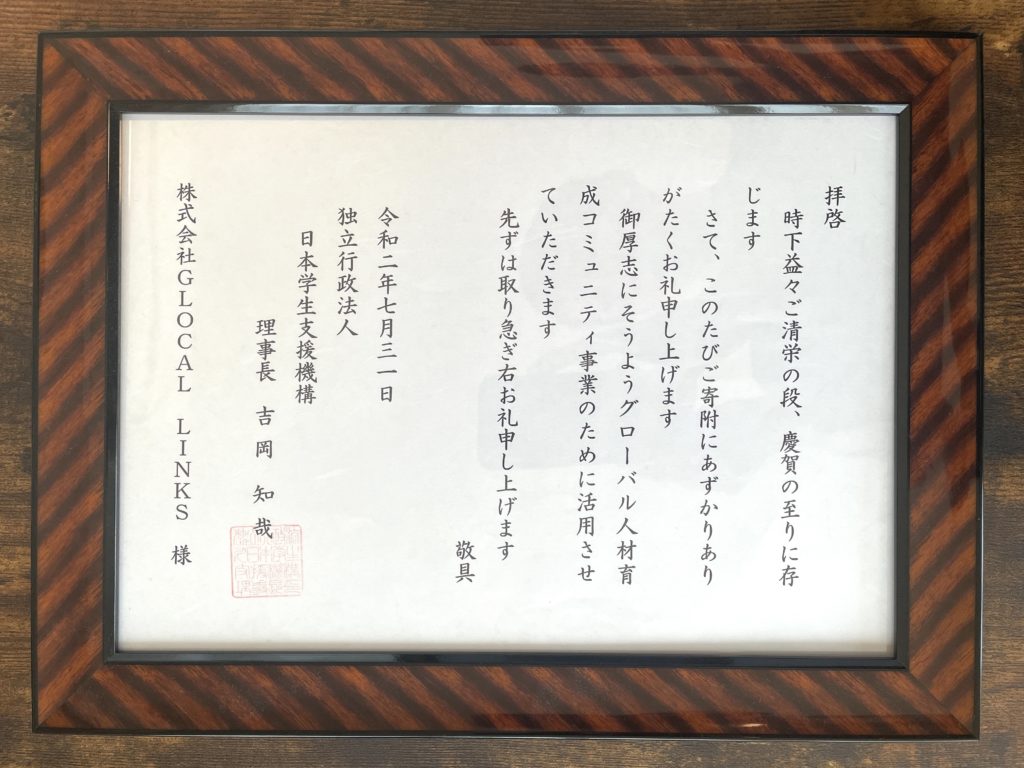 拝啓
時下益々ご清栄の段、慶賀の至りに存
じます
さて、このたびご寄附にあずかりあり
がたくお礼申し上げます
御厚志にそうようグローバル人材育
成コミュニティ事業のために活用させ
ていただきます
先ずは取り急ぎ右お礼申し上げます
敬具
令和二年七月三一日
独立行政法人
日本学生支援機構
理事長 吉岡知哉
株式会社GLOCAL LINKS 様